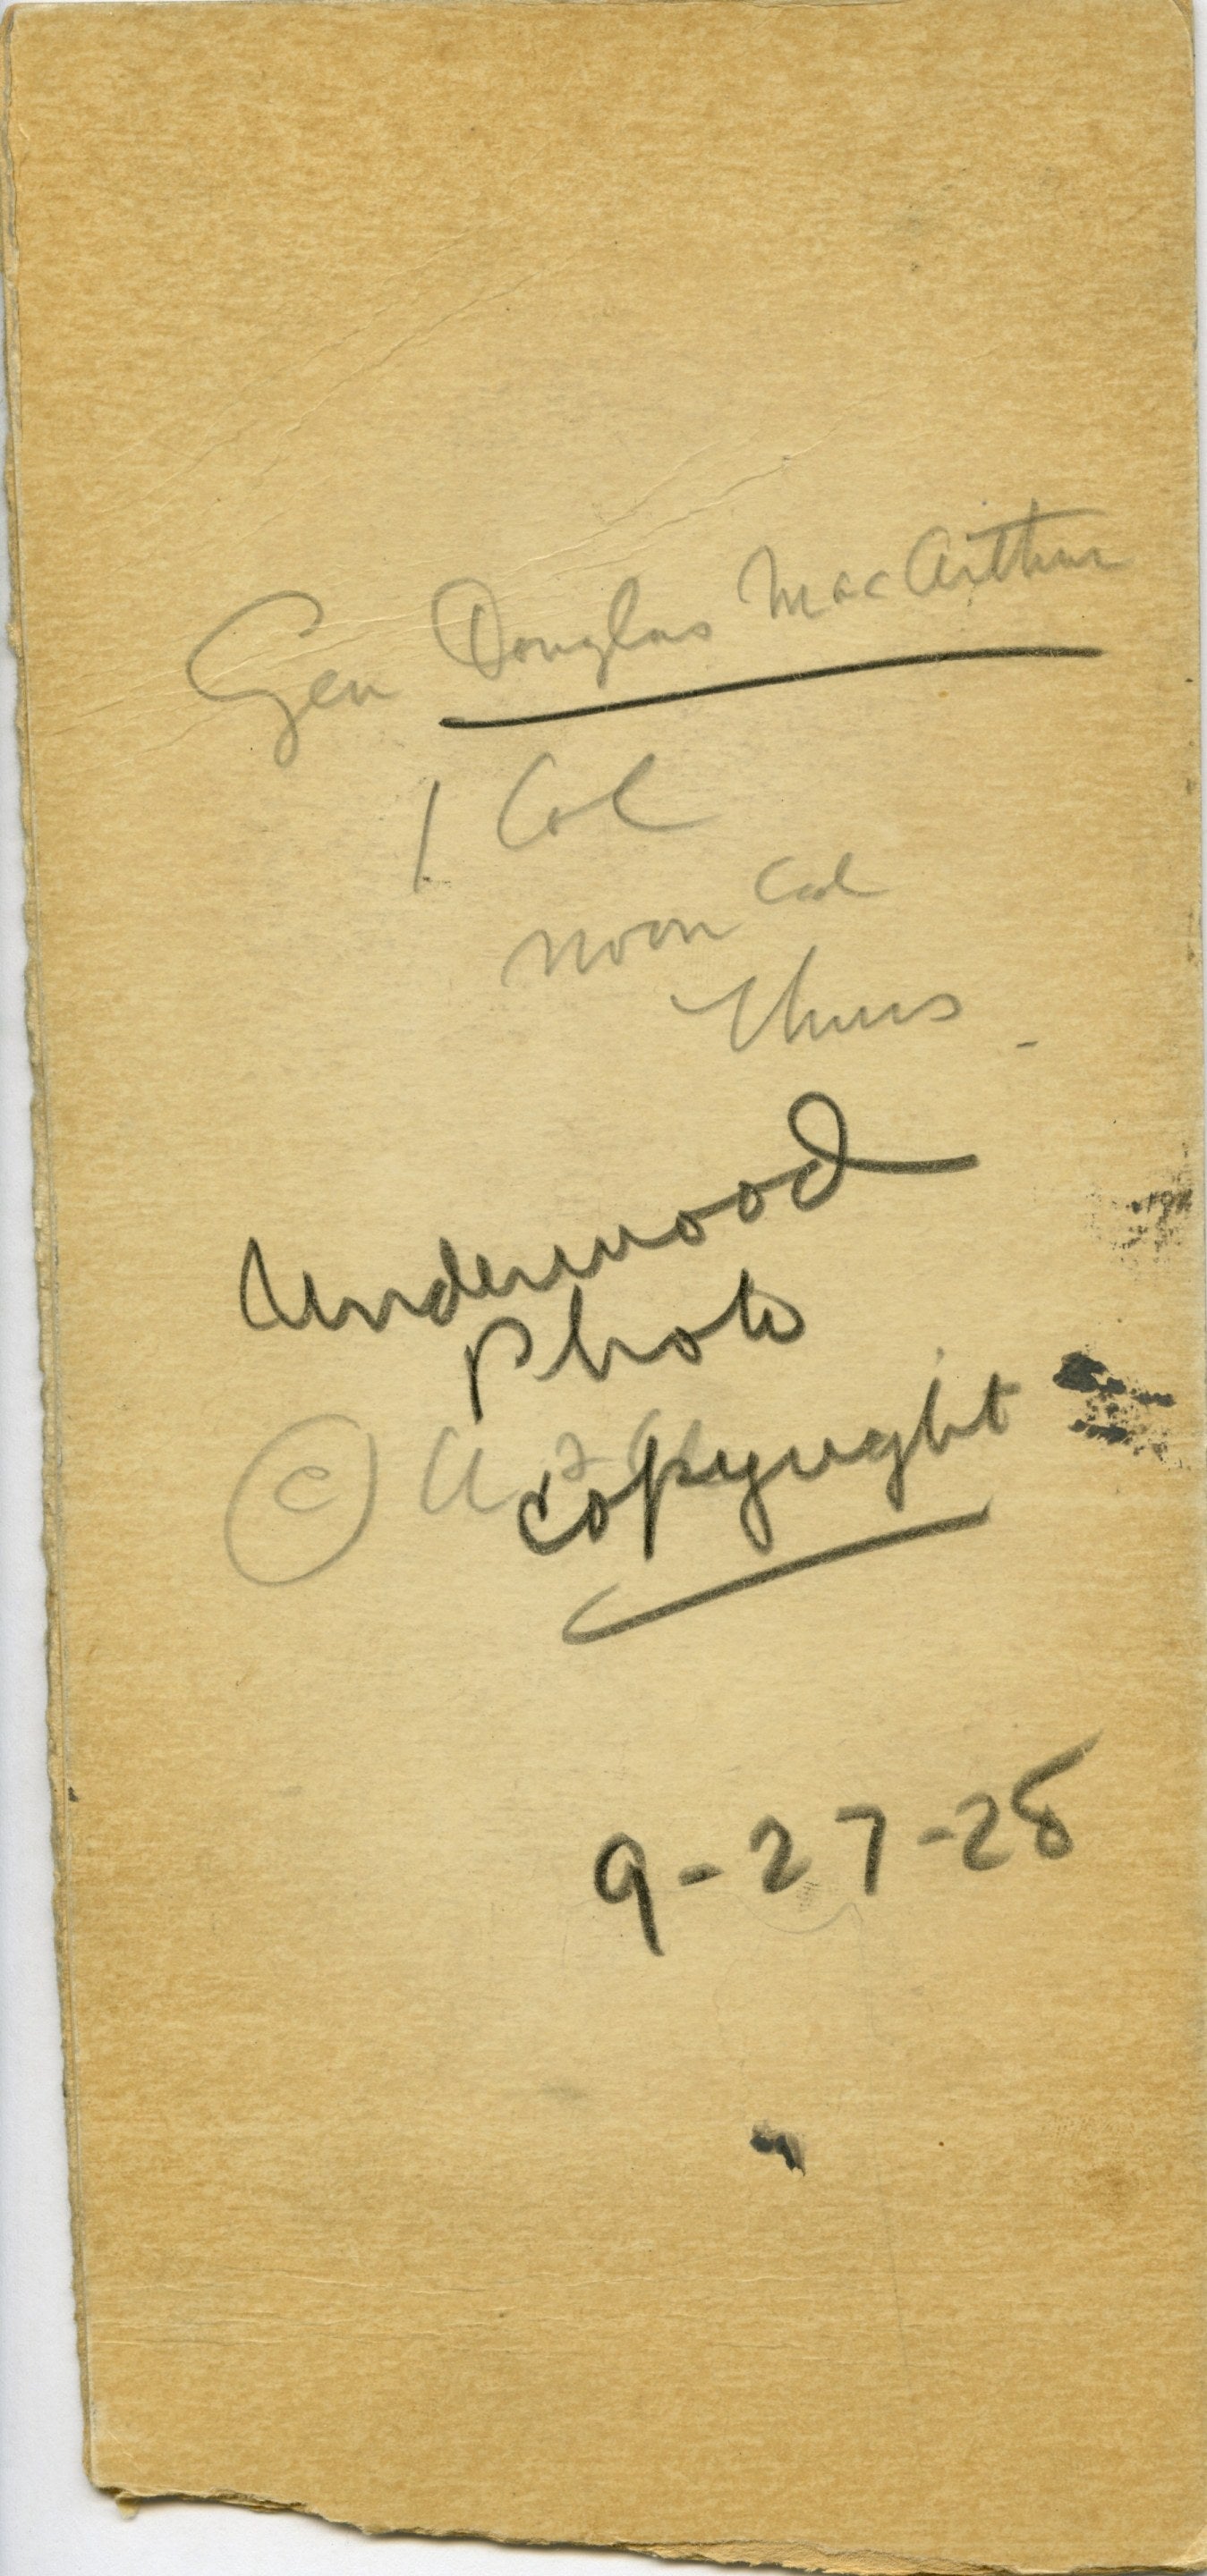 Gen Douglas MacArthur
1 Col
noon Col
Thurs
Underwood
Photo
© U &
Copyright
9-27-28